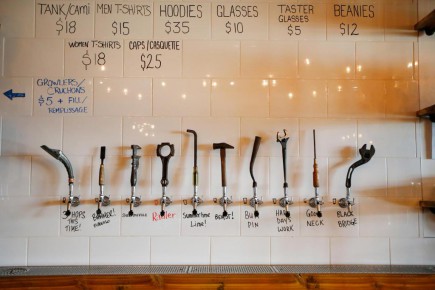 TANK/CAMI
$18
MEN T-SHIRTS
$15
HOODIES
$35
GLASSES
$10
TASTER
GLASSES
$5
BEANIES
$12
WOMEN T-SHIRTS
$18
CAPS/CASQUETTE
$25
GROWLERS/
CRUCHONS
$5 + FILL/
REMPLISSAGE
HOPS
THIS
TIME!
Summertime
Lime!
PIN
HARD
DAYS
WORK
NECK
BLACK
BRIDGE